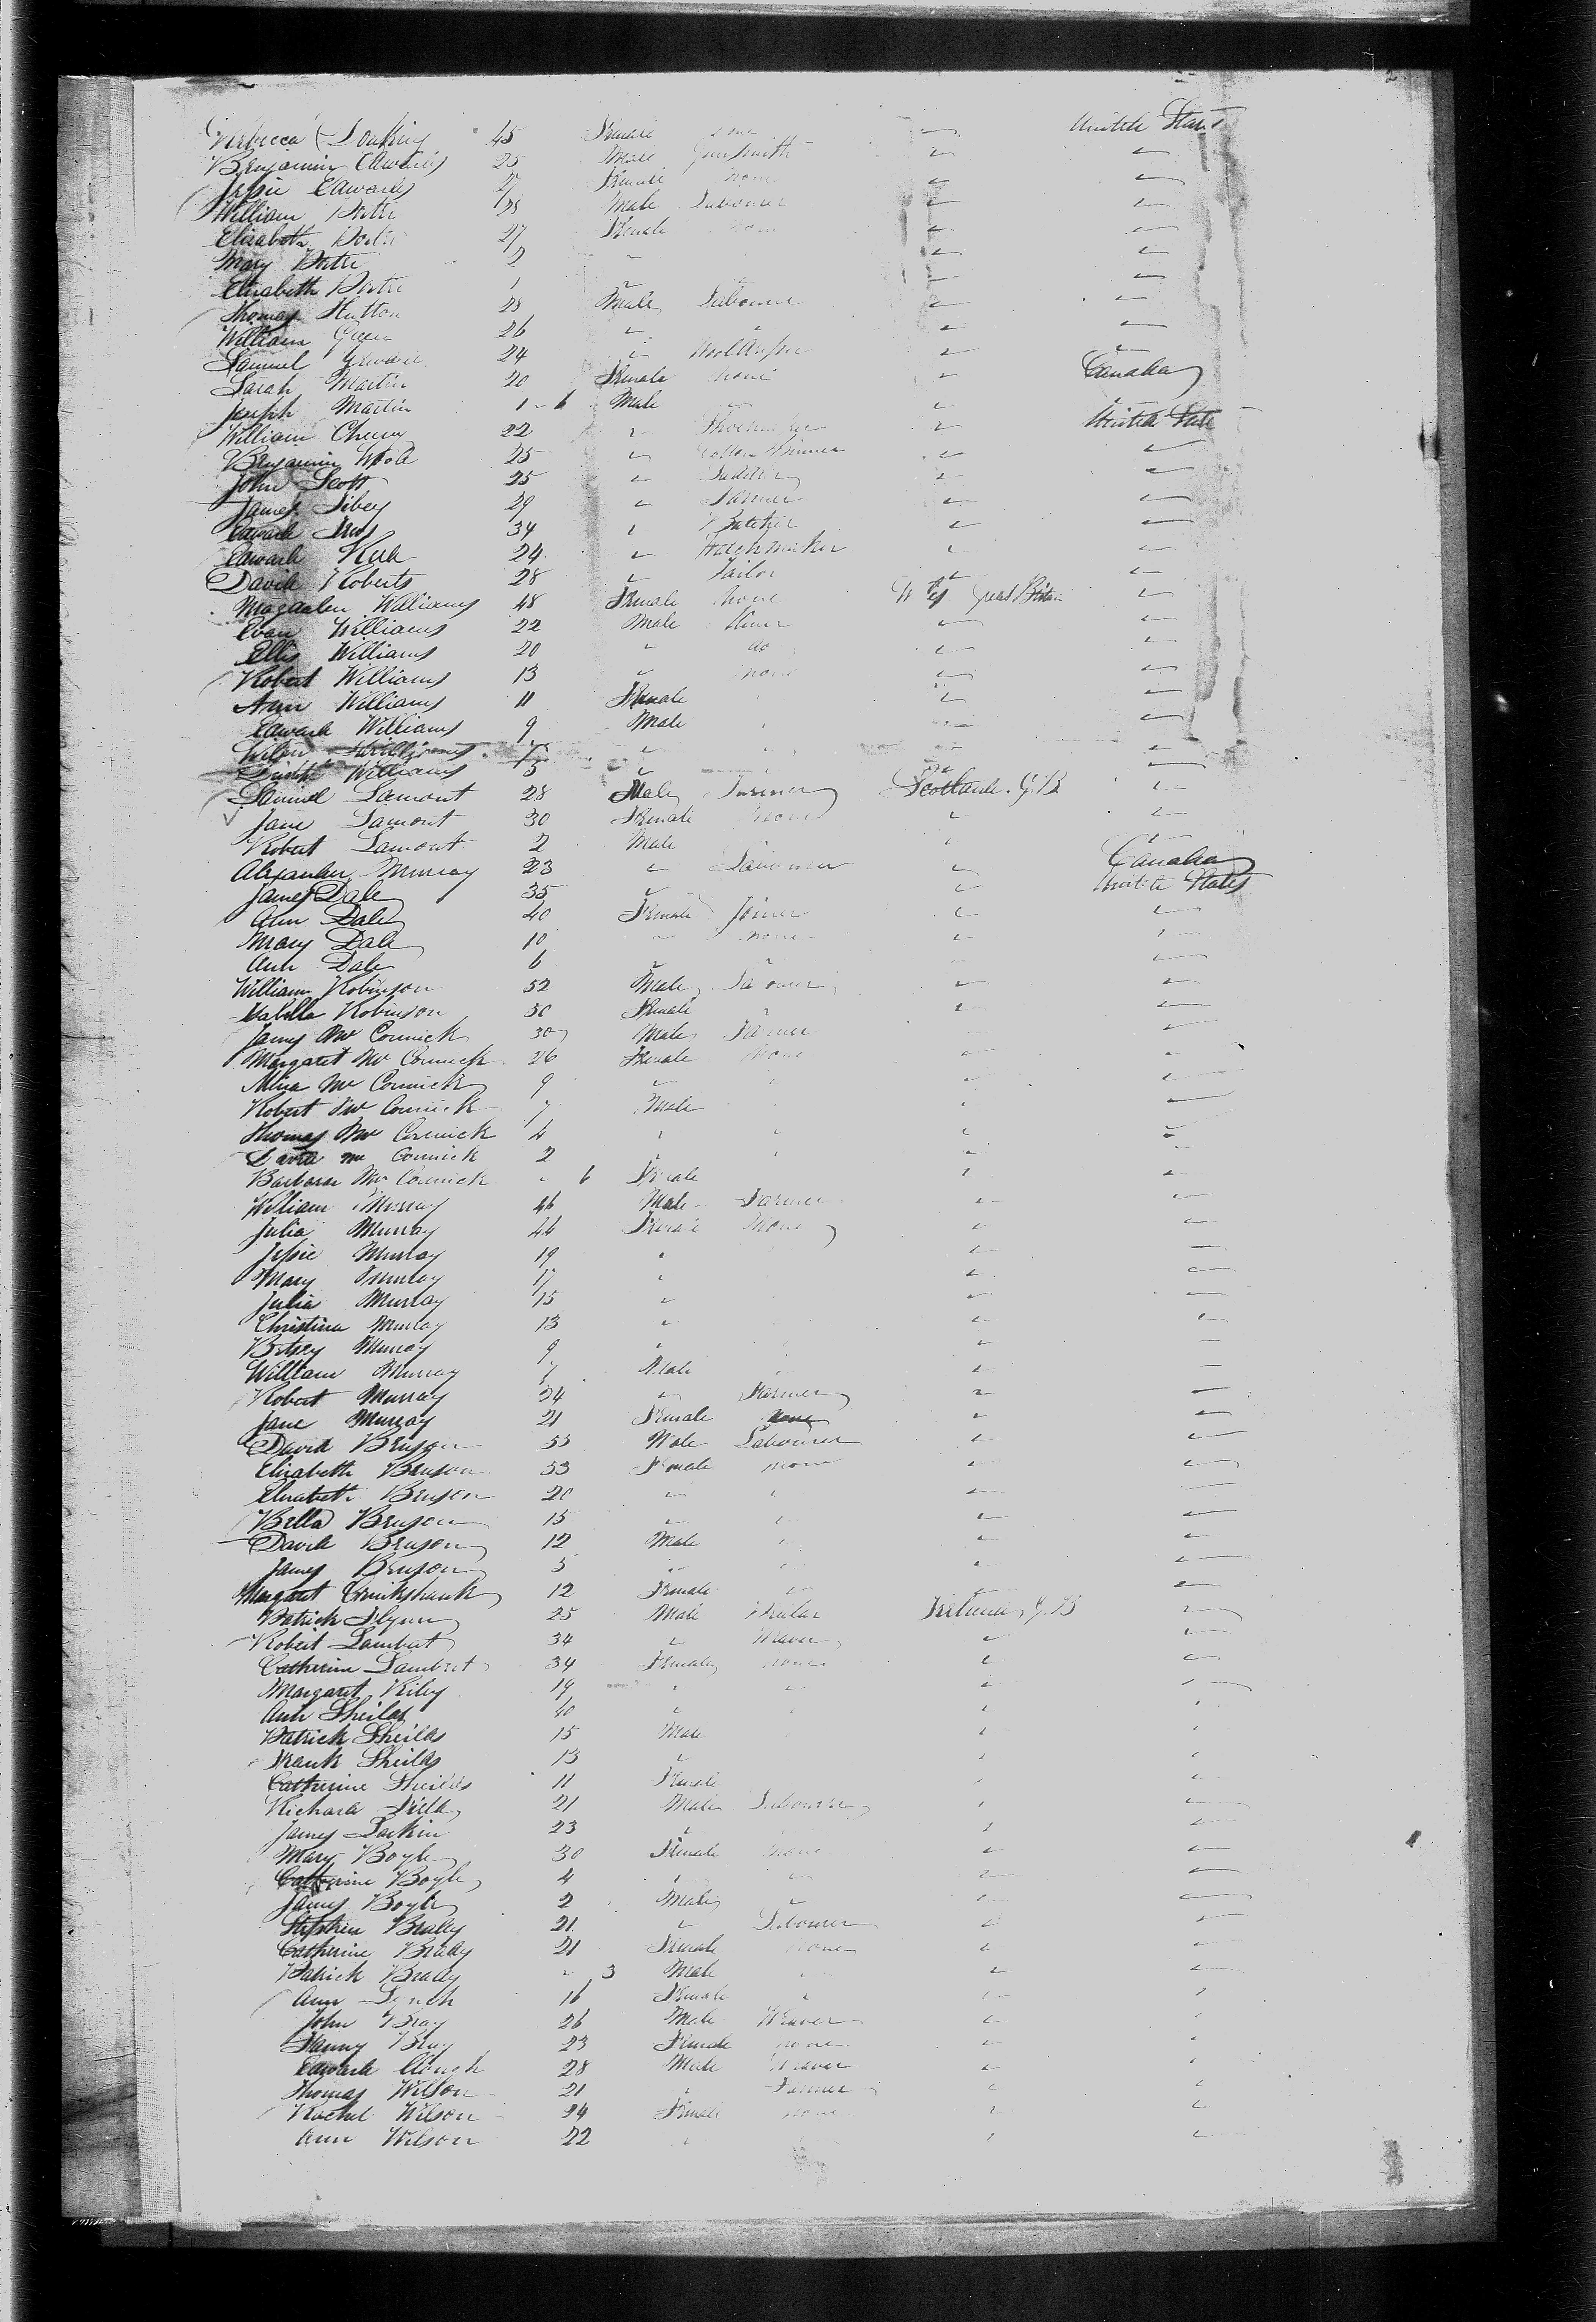 45 Female United States
Benjamin Edwards 25 Male Gunsmith
Jessie Edwards Female none
William Porter 28 Male Labourer
Elizabeth Porter 27 Female none
Mary Porter 2
Elizabeth Porter 1
Thomas Hutton 28 Male Labourer
William Green 26
Samuel 24
Sarah Martin 20 Female none Canada
Joseph Martin 1-6 Male
William Cherry 22 Shoemaker United State
Benjamin Wood 25 Cotton Spinner
John Scott 25
James Sibey 29 Farmer
Edward 34 Butcher
Edward Kirk 24 Watchmaker
David Roberts 28 Tailor
Magdalen Williams 48 Female none Great Britain
Evan Williams 22 Male Miner
Ellis Williams 20 do
Robert Williams 13 none
Ann Williams 11 Female
Edward Williams 9 Male
Williams 7
Williams 5
Samuel Lamont 28 Male Farmer Scotland. G.B
Jane Lamont 30 Female none
Robert Lamont 2 Male
Alexander Murray 23 Labourer Canada
James Dale 35 United States
Ann Dale 40 Female Joiner
Mary Dale 10 none
Ann Dale 6
William Robinson 52 Male Labourer
Isabella Robinson 50 Female
James Mc Cormick 30 Male Farmer
Margaret Mc Cormick 26 Female none
Mc Cormick 9
Robert Mc Cormick 7 Male
Thomas Mc Cormick 4
David Mc Cormick 2
Barbara Mc Cormick - 6 Female
William Murray 46 Male Farmer
Julia Murray 44 Female none
Jessie Murray 19
Mary Murray 17
Julia Murray 15
Christina Murray 13
Betsey Murray 9
William Murray 7 Male
Robert Murray 24 Farmer
Jane Murray 21 Female none
David Bruson 55 Male Labourer
Elizabeth Bruson 53 Female none
Elizabeth Bruson 20
Bella Bruson 15
David Bruson 12 Male
James Bruson 5
Margaret Cruikshank 12 Female
Patrick Flynn 25 Male Ireland G.B
Robert Lambert 34 Weaver
Catherine Lambert 34 Female none
Margaret Riley 19
Ann Sheilds 40
Patrick Sheilds 15 Male
Frank Sheilds 13
Catherine Sheilds 11 Female
Richard 21 Male Labourer
James Larkin 23
Mary Boyle 30 Female none
Catherine Boyle 4
James Boyle 2 Male
Stephen Brady 21 Labourer
Catherine Brady 21 Female none
Patrick Brady - 3 Male
Ann Lynch 16 Female
John Bray 26 Male Weaver
Fanny Bray 23 Female none
Edward Clough 28 Male Weaver
Thomas Wilson 21 Farmer
Rachel Wilson 24 Female none
Ann Wilson 22